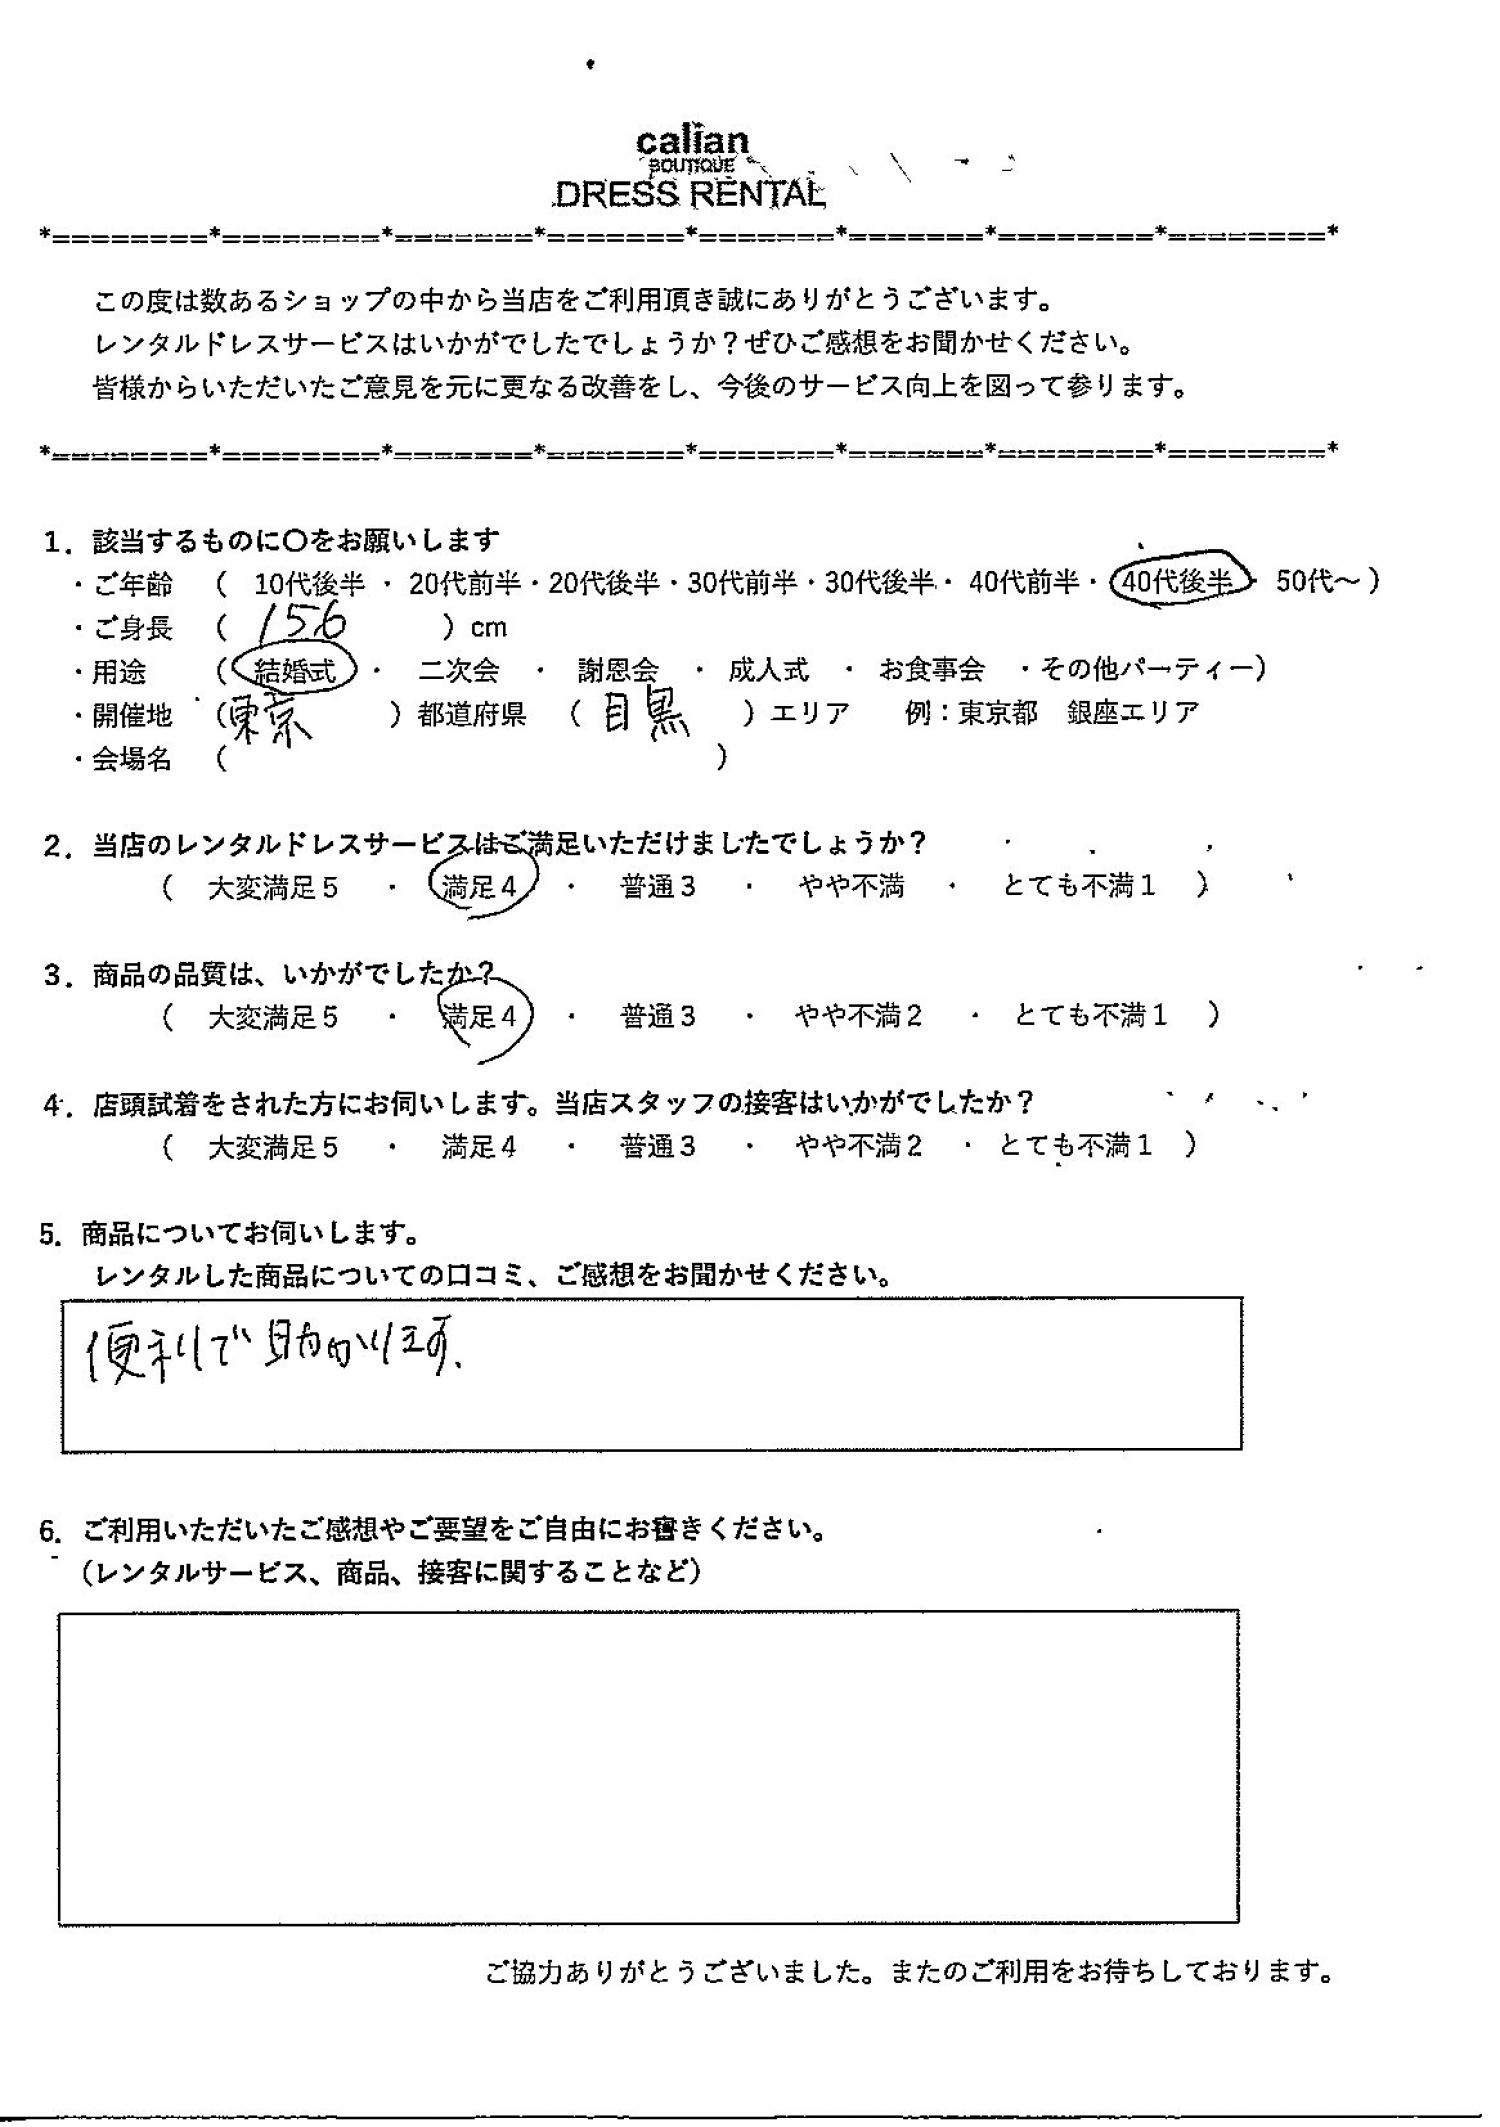 calian
BOUTIQUE
DRESS RENTAL
*========*========*=======*=======*=======*=======*========*========*
この度は数あるショップの中から当店をご利用頂き誠にありがとうございます。
レンタルドレスサービスはいかがでしたでしょうか？ぜひご感想をお聞かせください。
皆様からいただいたご意見を元に更なる改善をし、今後のサービス向上を図って参ります。
*========*========*=======*=======*=======*=======*========*========*
1．該当するものに〇をお願いします
・ご年齢 （ 10代後半 ・ 20代前半・20代後半・30代前半・30代後半・ 40代前半・ 40代後半・ 50代～）
・ご身長 （ 156 ）cm
・用途 （ 結婚式 ・ 二次会 ・ 謝恩会 ・ 成人式 ・ お食事会 ・その他パーティー）
・開催地 （東京 ）都道府県 （ 目黒 ）エリア 例：東京都 銀座エリア
・会場名 （ ）
2．当店のレンタルドレスサービスはご満足いただけましたでしょうか？
（ 大変満足５ ・ 満足４ ・ 普通３ ・ やや不満 ・ とても不満１ ）
3．商品の品質は、いかがでしたか？
（ 大変満足５ ・ 満足４ ・ 普通３ ・ やや不満２ ・ とても不満１ ）
4．店頭試着をされた方にお伺いします。当店スタッフの接客はいかがでしたか？
（ 大変満足５ ・ 満足４ ・ 普通３ ・ やや不満２ ・とても不満１ ）
5．商品についてお伺いします。
レンタルした商品についての口コミ、ご感想をお聞かせください。
便利で助かります、
6．ご利用いただいたご感想やご要望をご自由にお書きください。
（レンタルサービス、商品、接客に関することなど）
ご協力ありがとうございました。またのご利用をお待ちしております。